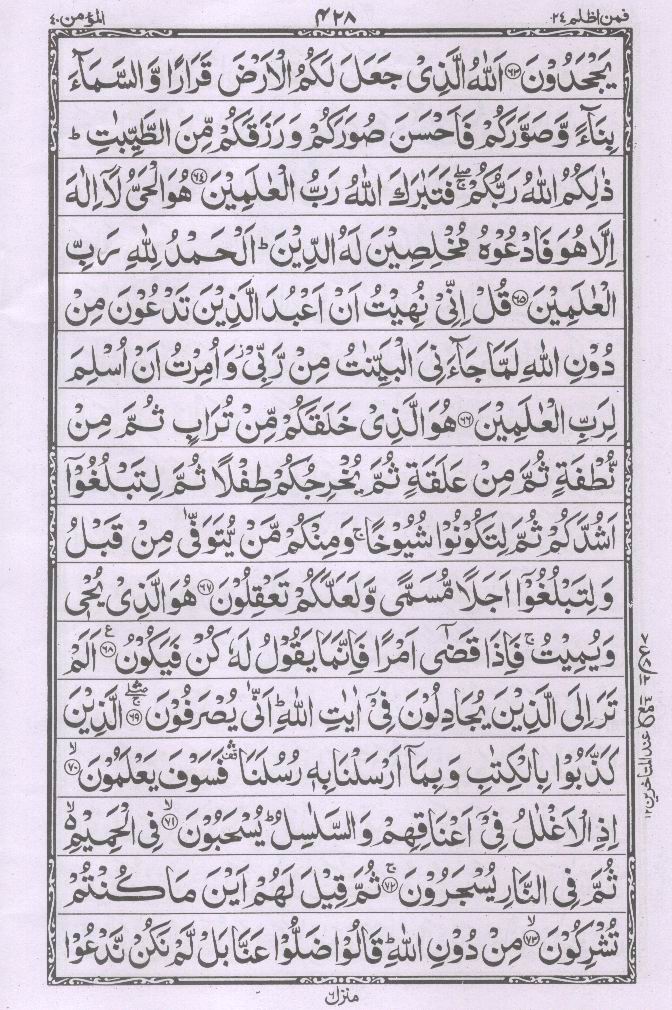 فمن اظلم ٢٤ ٤٢٨ المؤمن ٤٠
يَجْحَدُوْنَ ﴿٦٣﴾ اَللّٰهُ الَّذِىْ جَعَلَ لَكُمُ الْاَرْضَ قَرَارًا وَّالسَّمَآءَ
بِنَآءً وَّصَوَّرَكُمْ فَاَحْسَنَ صُوَرَكُمْ وَرَزَقَكُمْ مِّنَ الطَّيِّبٰتِ ؕ
ذٰلِكُمُ اللّٰهُ رَبُّكُمْ ۖۚ فَتَبٰرَكَ اللّٰهُ رَبُّ الْعٰلَمِيْنَ ﴿٦٤﴾ هُوَ الْحَىُّ لَاۤ اِلٰهَ
اِلَّا هُوَ فَادْعُوْهُ مُخْلِصِيْنَ لَهُ الدِّيْنَ ؕ اَلْحَمْدُ لِلّٰهِ رَبِّ
الْعٰلَمِيْنَ ﴿٦٥﴾ قُلْ اِنِّىْ نُهِيْتُ اَنْ اَعْبُدَ الَّذِيْنَ تَدْعُوْنَ مِنْ
دُوْنِ اللّٰهِ لَمَّا جَآءَنِىَ الْبَيِّنٰتُ مِنْ رَّبِّىْ وَاُمِرْتُ اَنْ اُسْلِمَ
لِرَبِّ الْعٰلَمِيْنَ ﴿٦٦﴾ هُوَ الَّذِىْ خَلَقَكُمْ مِّنْ تُرَابٍ ثُمَّ مِنْ
نُّطْفَةٍ ثُمَّ مِنْ عَلَقَةٍ ثُمَّ يُخْرِجُكُمْ طِفْلًا ثُمَّ لِتَبْلُغُوْۤا
اَشُدَّكُمْ ثُمَّ لِتَكُوْنُوْا شُيُوْخًا ۚ وَمِنْكُمْ مَّنْ يُّتَوَفّٰى مِنْ قَبْلُ
وَلِتَبْلُغُوْۤا اَجَلًا مُّسَمًّى وَّلَعَلَّكُمْ تَعْقِلُوْنَ ﴿٦٧﴾ هُوَ الَّذِىْ يُحْىٖ
وَيُمِيْتُ ۚ فَاِذَا قَضٰٓى اَمْرًا فَاِنَّمَا يَقُوْلُ لَهٗ كُنْ فَيَكُوْنُ ﴿٦٨﴾ اَلَمْ
تَرَ اِلَى الَّذِيْنَ يُجَادِلُوْنَ فِىْۤ اٰيٰتِ اللّٰهِ ؕ اَنّٰى يُصْرَفُوْنَ ﴿٦٩﴾ الَّذِيْنَ
كَذَّبُوْا بِالْكِتٰبِ وَبِمَاۤ اَرْسَلْنَا بِهٖ رُسُلَنَا فَسَوْفَ يَعْلَمُوْنَ ﴿٧٠﴾
اِذِ الْاَغْلٰلُ فِىْۤ اَعْنَاقِهِمْ وَالسَّلٰسِلُ ؕ يُسْحَبُوْنَ ﴿٧١﴾ فِى الْحَمِيْمِ
ثُمَّ فِى النَّارِ يُسْجَرُوْنَ ﴿٧٢﴾ ثُمَّ قِيْلَ لَهُمْ اَيْنَ مَا كُنْتُمْ
تُشْرِكُوْنَ ﴿٧٣﴾ مِنْ دُوْنِ اللّٰهِ ؕ قَالُوْا ضَلُّوْا عَنَّا بَلْ لَّمْ نَكُنْ نَّدْعُوْا
عند المتأخرين ١٢
منزل ٦